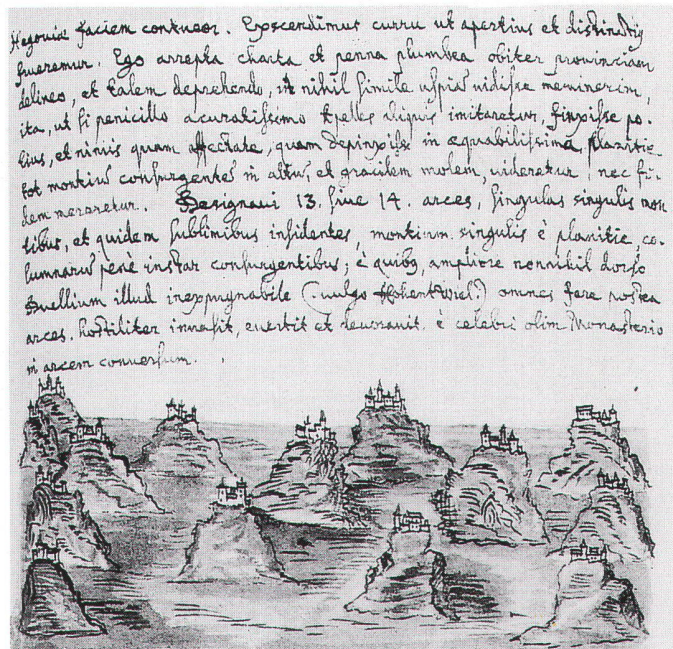 Hegoviæ faciem contueor. Exscendimus curru ut apertius et distinctiy
fueremur. Ego arrepta charta et penna plumbea obiter provinciam
delineo, et talem deprehendo, ut nihil simile uspiā vidisse meminerim,
ita, ut si penicillo acuratissimo Apelles aliquis imitaretur, finxisse po-
tius, et nimis quam affectate, quam depinxisse in æquabilissima planitie
tot montiū consurgentē in altū, et gracilem molem, videretur, nec fi-
dem mereretur. Designavi 13. sive 14. arces, singulas singulis mon
tibus, et quidem sublimibus insidentes, montium singulis è planitie, co-
lumnarū penè instar consurgentibus; è quibȝ, ampliore nonnihil dorso
Duellium illud inexpugnabile (vulgo Hohentwiel.) omnes fere nostra
arces. hostiliter invasit, evertit et devoravit. è celebri olim Monasterio
in arcem conversum.